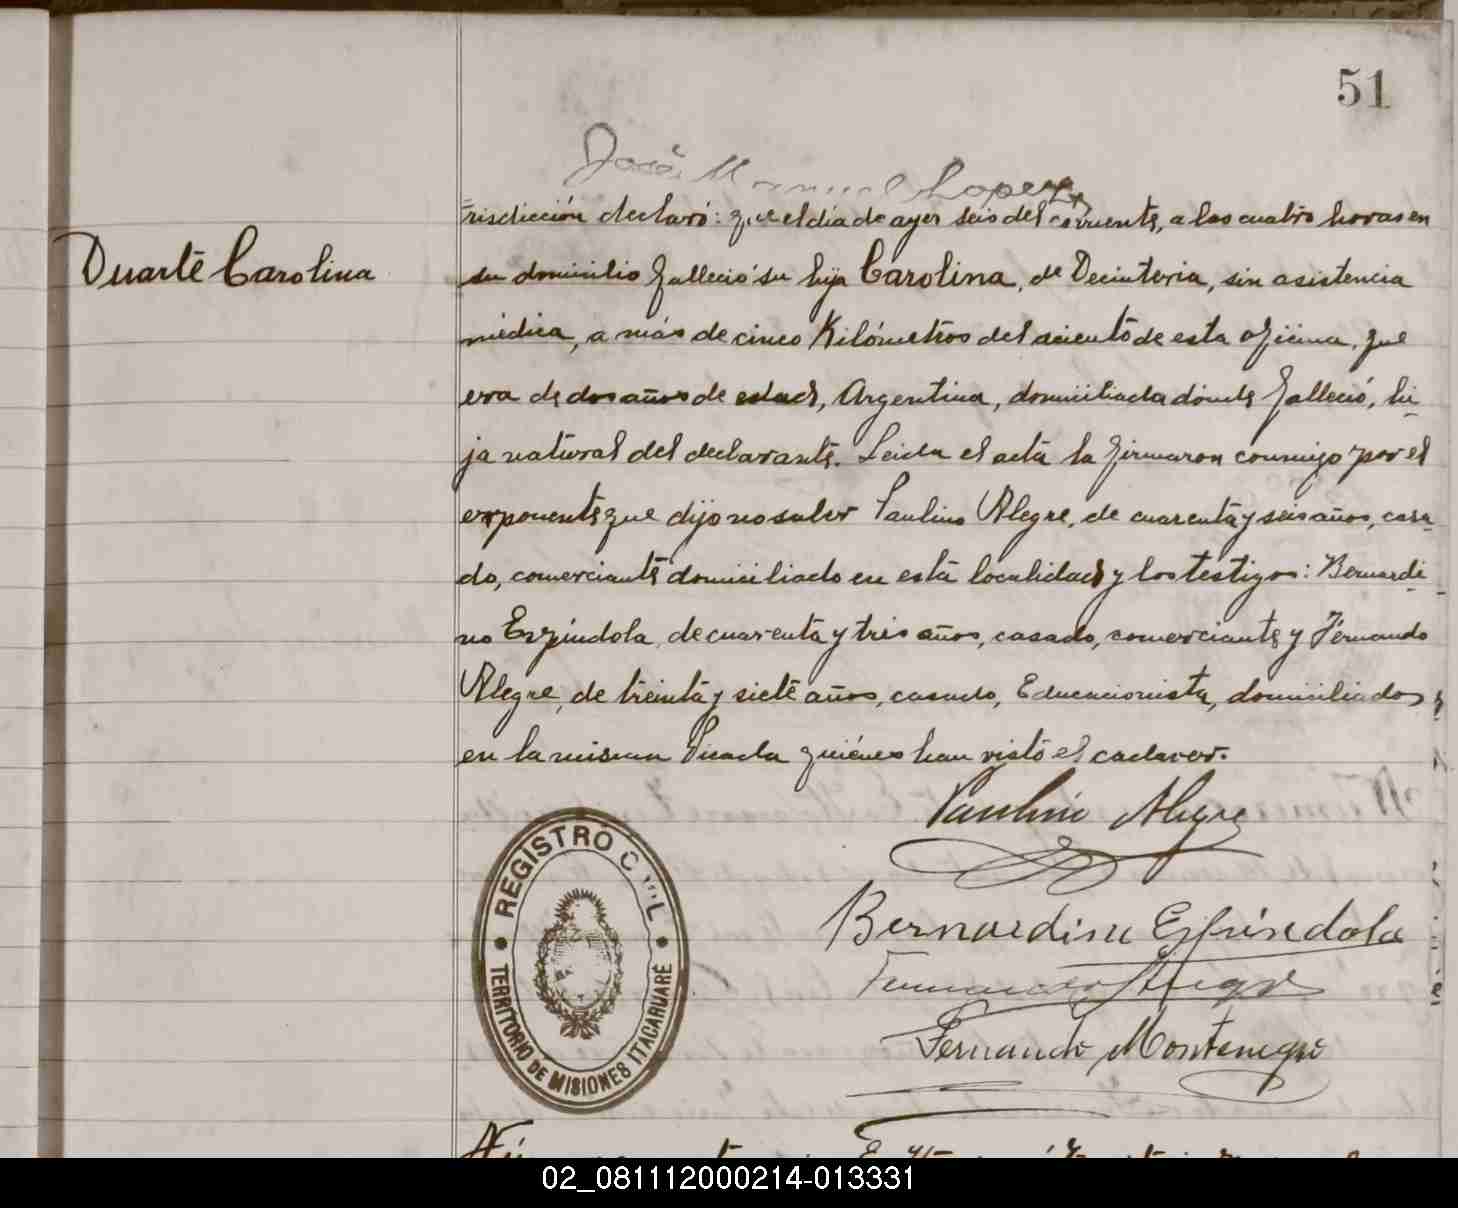 51
José Manuel Lopez
risdicción declaró: que el día de ayer seis del corriente, a las cuatro horas en
Duarte Carolina
su domicilio falleció su hija Carolina, de Decinteria, sin asistencia
médica, a más de cinco Kilómetros del aciento de esta oficina, que
era de dos años de edad, Argentina, domiciliada donde falleció, hi-
ja natural del declarante. Leida el acta la firmaron conmigo por el
exponente que dijo no saber Paulino Alegre, de cuarenta y seis años, casa-
do, comerciante domiciliado en esta localidad y los testigos: Bernardi-
no Espíndola, de cuarenta y tres años, casado, comerciante y Fernando
Alegre, de treinta y siete años, casado, Educacionista, domiciliados
en la misma Picada quiénes han visto el cadaver.
Paulino Alegre
Bernardino Espíndola
Fernando Alegre
Fernando Montenegro
REGISTRO CIVIL
TERRITORIO DE MISIONES ITACARUARÉ
02_081112000214-013331